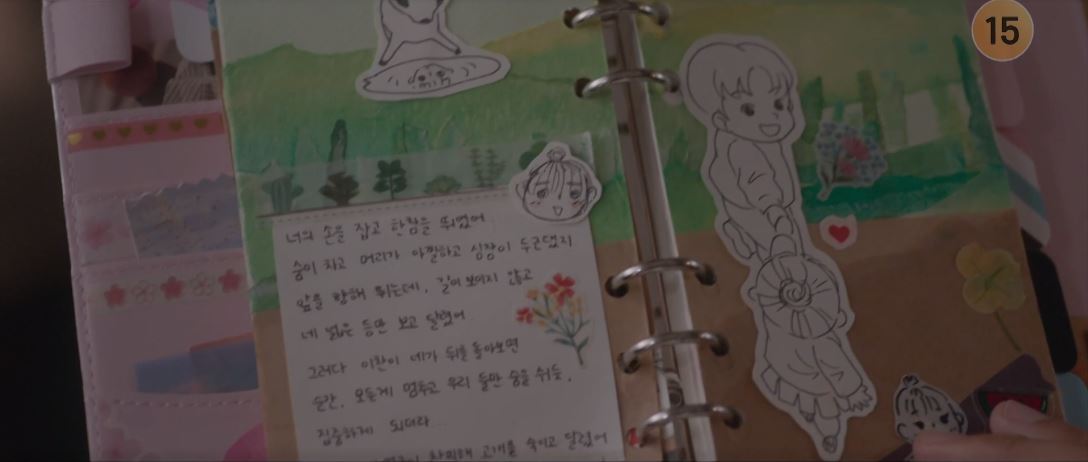 15
너의 손을 잡고 한참을 뛰었어
숨이 차고 머리가 아찔하고 심장이 두근댔지
앞을 향해 뛰는데, 길이 보이지 않고
네 넓은 등만 보고 달렸어
그러다 이찬이 네가 뒤를 돌아보면
순간, 모든게 멈추고 우리 둘만 숨을 쉬듯,
집중하게 되더라
고개를 숙이고 달렸어